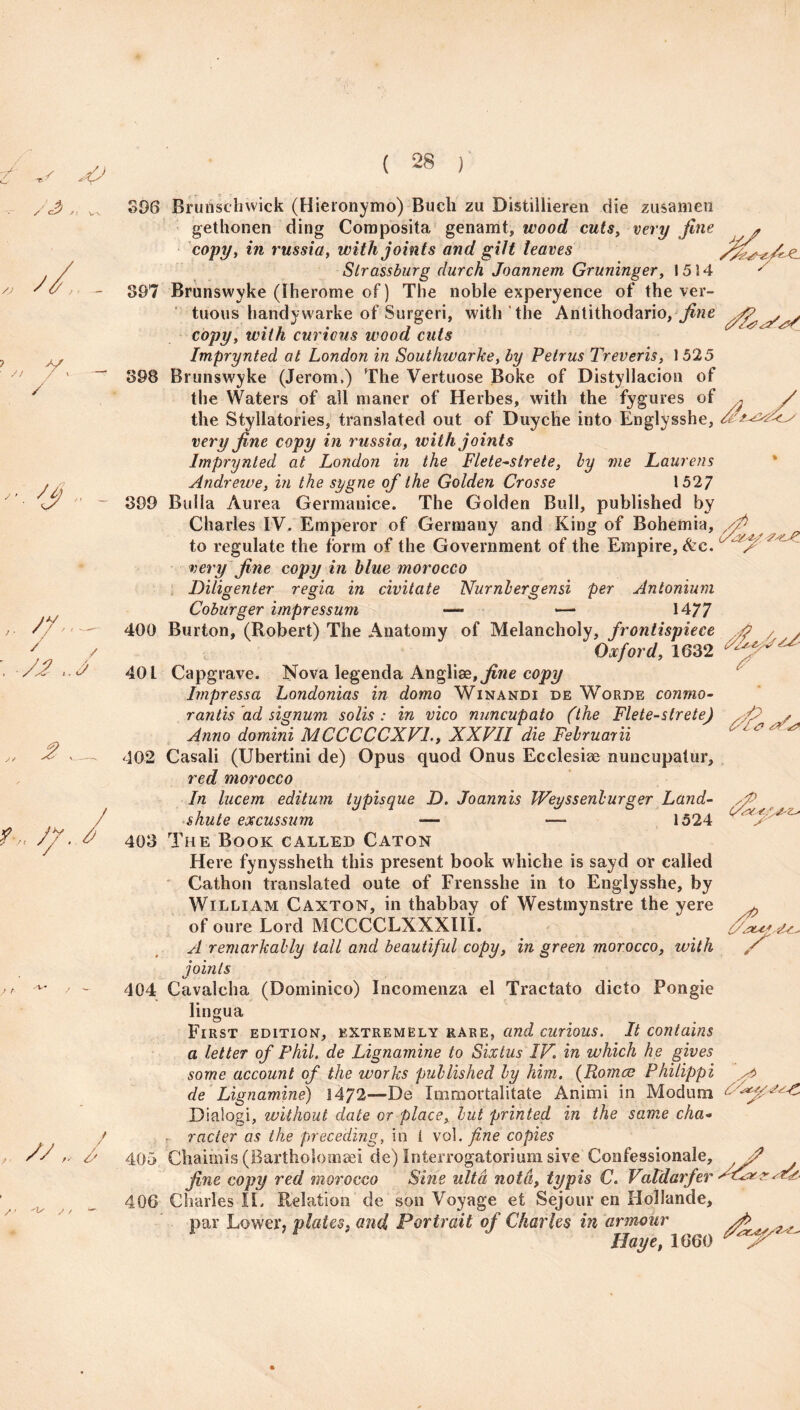 ( 28 )
396 Brunschwick (Hieronymo) Buch zu Distillieren die zusamen
gethonen ding Composita genamt, wood cuts, very fine
copy, in russia, with joints and gilt leaves
Strassburg durch Joannem Gruninger, 1514
397 Brunswyke (Iherome of) The noble experyence of the ver-
tuous handywarke of Surgeri, with the Antithodario, fine
copy, with curious wood cuts
Imprynted at London in Southwarke, by Petrus Treveris, 1525
398 Brunswyke (Jerom.) The Vertuose Boke of Distyllacion of
the Waters of all maner of Herbes, with the fygures of
the Styllatories, translated out of Duyche into Englysshe,
very fine copy in russia, with joints
Imprynted at London in the Flete-strete, by me Laurens
Andrewe, in the sygne of the Golden Crosse 1527
399 Bulla Aurea Germanice. The Golden Bull, published by
Charles IV. Emperor of Germany and King of Bohemia,
to regulate the form of the Government of the Empire, &c.
very fine copy in blue morocco
Diligenter regia in civitate Nurnbergensi per Antonium
Coburger impressum — — 1477
400 Burton, (Robert) The Anatomy of Melancholy, frontispiece
Oxford, 1632
401 Capgrave. Nova legenda Angliæ, fine copy
Impressa Londonias in domo Winandi de Worde conmo-
rantis ad signum solis : in vico nuncupato (the Flete-strete)
Anno domini MCCCCCXVI., XXVII die Februarii
402 Casali (Ubertini de) Opus quod Onus Ecclesiæ nuncupatur,
red morocco
In lucem editum typisque D. Joannis Weyssenburger Land-
shute excussum — — 1524
403 The Book called Caton
Here fynyssheth this present book whiche is sayd or called
Cathon translated oute of Frensshe in to Englysshe, by
William Caxton, in thabbay of Westmynstre the yere
of oure Lord MCCCCLXXXIII.
A remarkably tall and beautiful copy, in green morocco, with
joints
404 Cavalcha (Dominico) Incomenza el Tractato dicto Pongie
lingua
First edition, extremely rare, and curious. It contains
a letter of Phil. de Lignamine to Sixtus IV. in which he gives
some account of the works published by him. (Romæ Philippi
de Lignamine) 1472—De Immortalitate Animi in Modum
Dialogi, without date or place, but printed in the same cha-
racter as the preceding, in 1 vol. fine copies
405 Chaimis (Bartholomæi de) Interrogatorium sive Confessionale,
fine copy red morocco Sine ulta nota, typis C. Valdarfer
406 Charles II. Relation de son Voyage et Sejour en Hollande,
par Lower, plates, and Portrait of Charles in armour
Haye, 1660